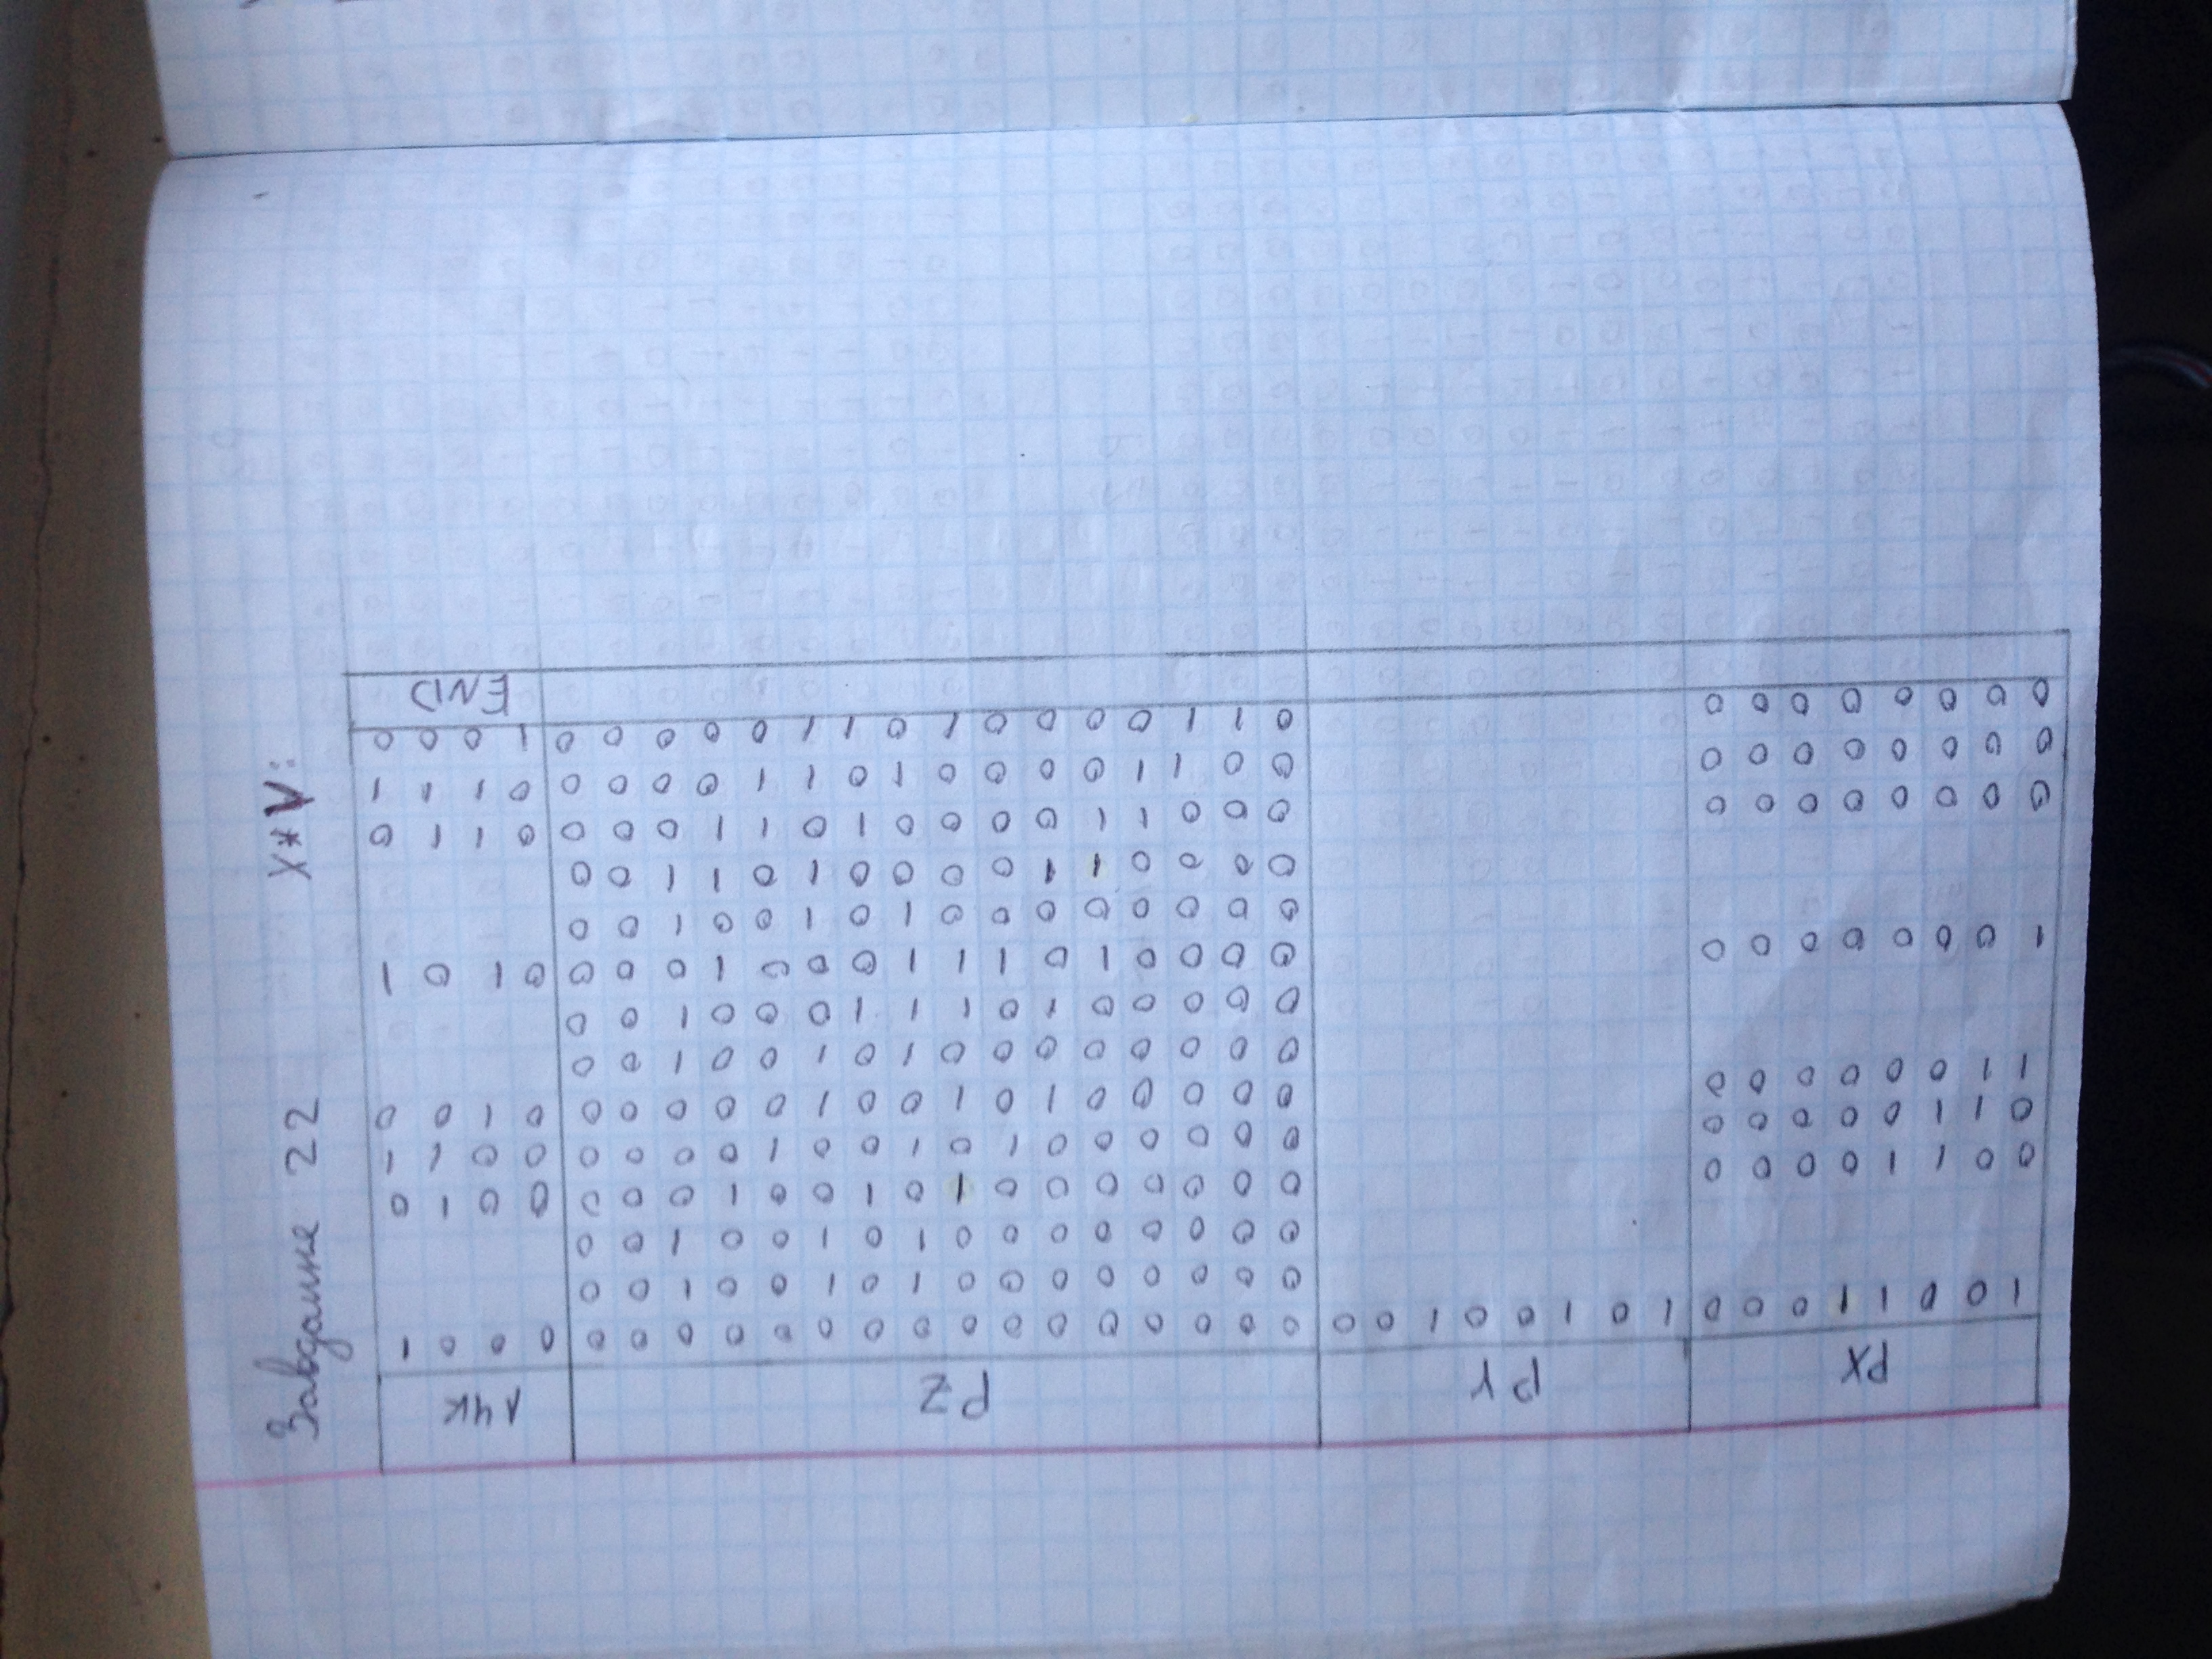 Завдання 22 X*V:
PX PY PZ ЛЧК
1 0 0 1 1 0 0 0 1 0 1 0 0 1 0 0 0 0 0 0 0 0 0 0 0 0 0 0 0 0 0 0 0 0 0 1
0 0 0 0 0 0 0 0 1 0 1 0 0 1 0 0
0 0 0 0 0 0 0 0 1 0 1 0 0 1 0 0
0 0 1 1 0 0 0 0 0 0 0 0 0 0 0 1 0 1 0 0 1 0 0 0 0 0 1 0
0 1 1 0 0 0 0 0 0 0 0 0 0 0 1 0 1 0 0 1 0 0 0 0 0 0 1 1
1 1 0 0 0 0 0 0 0 0 0 0 0 1 0 1 0 0 1 0 0 0 0 0 0 1 0 0
0 0 0 0 0 0 0 0 1 0 1 0 0 1 0 0
0 0 0 0 0 1 0 1 1 1 0 0 0 1 0 0
1 0 0 0 0 0 0 0 0 0 0 0 1 0 1 1 1 0 0 0 1 0 0 0 0 1 0 1
0 0 0 0 0 0 0 0 1 0 1 0 0 1 0 0
0 0 0 0 1 1 0 0 0 0 1 0 1 1 0 0
0 0 0 0 0 0 0 0 0 0 0 1 1 0 0 0 0 1 0 1 1 0 0 0 0 1 1 0
0 0 0 0 0 0 0 0 0 0 1 1 0 0 0 0 1 0 1 1 0 0 0 0 0 1 1 1
0 0 0 0 0 0 0 0 0 1 1 0 0 0 0 1 0 1 1 0 0 0 0 0 1 0 0 0
END